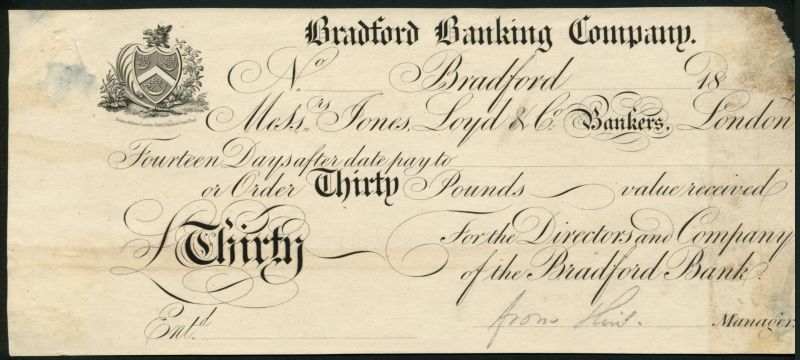 Bradford Banking Company.
No Bradford 18
Messrs. Jones, Loyd & Co. Bankers, London
Fourteen Days after date pay to
or Order Thirty Pounds value received
£ Thirty For the Directors and Company
of the Bradford Bank.
Entd. from Manager.